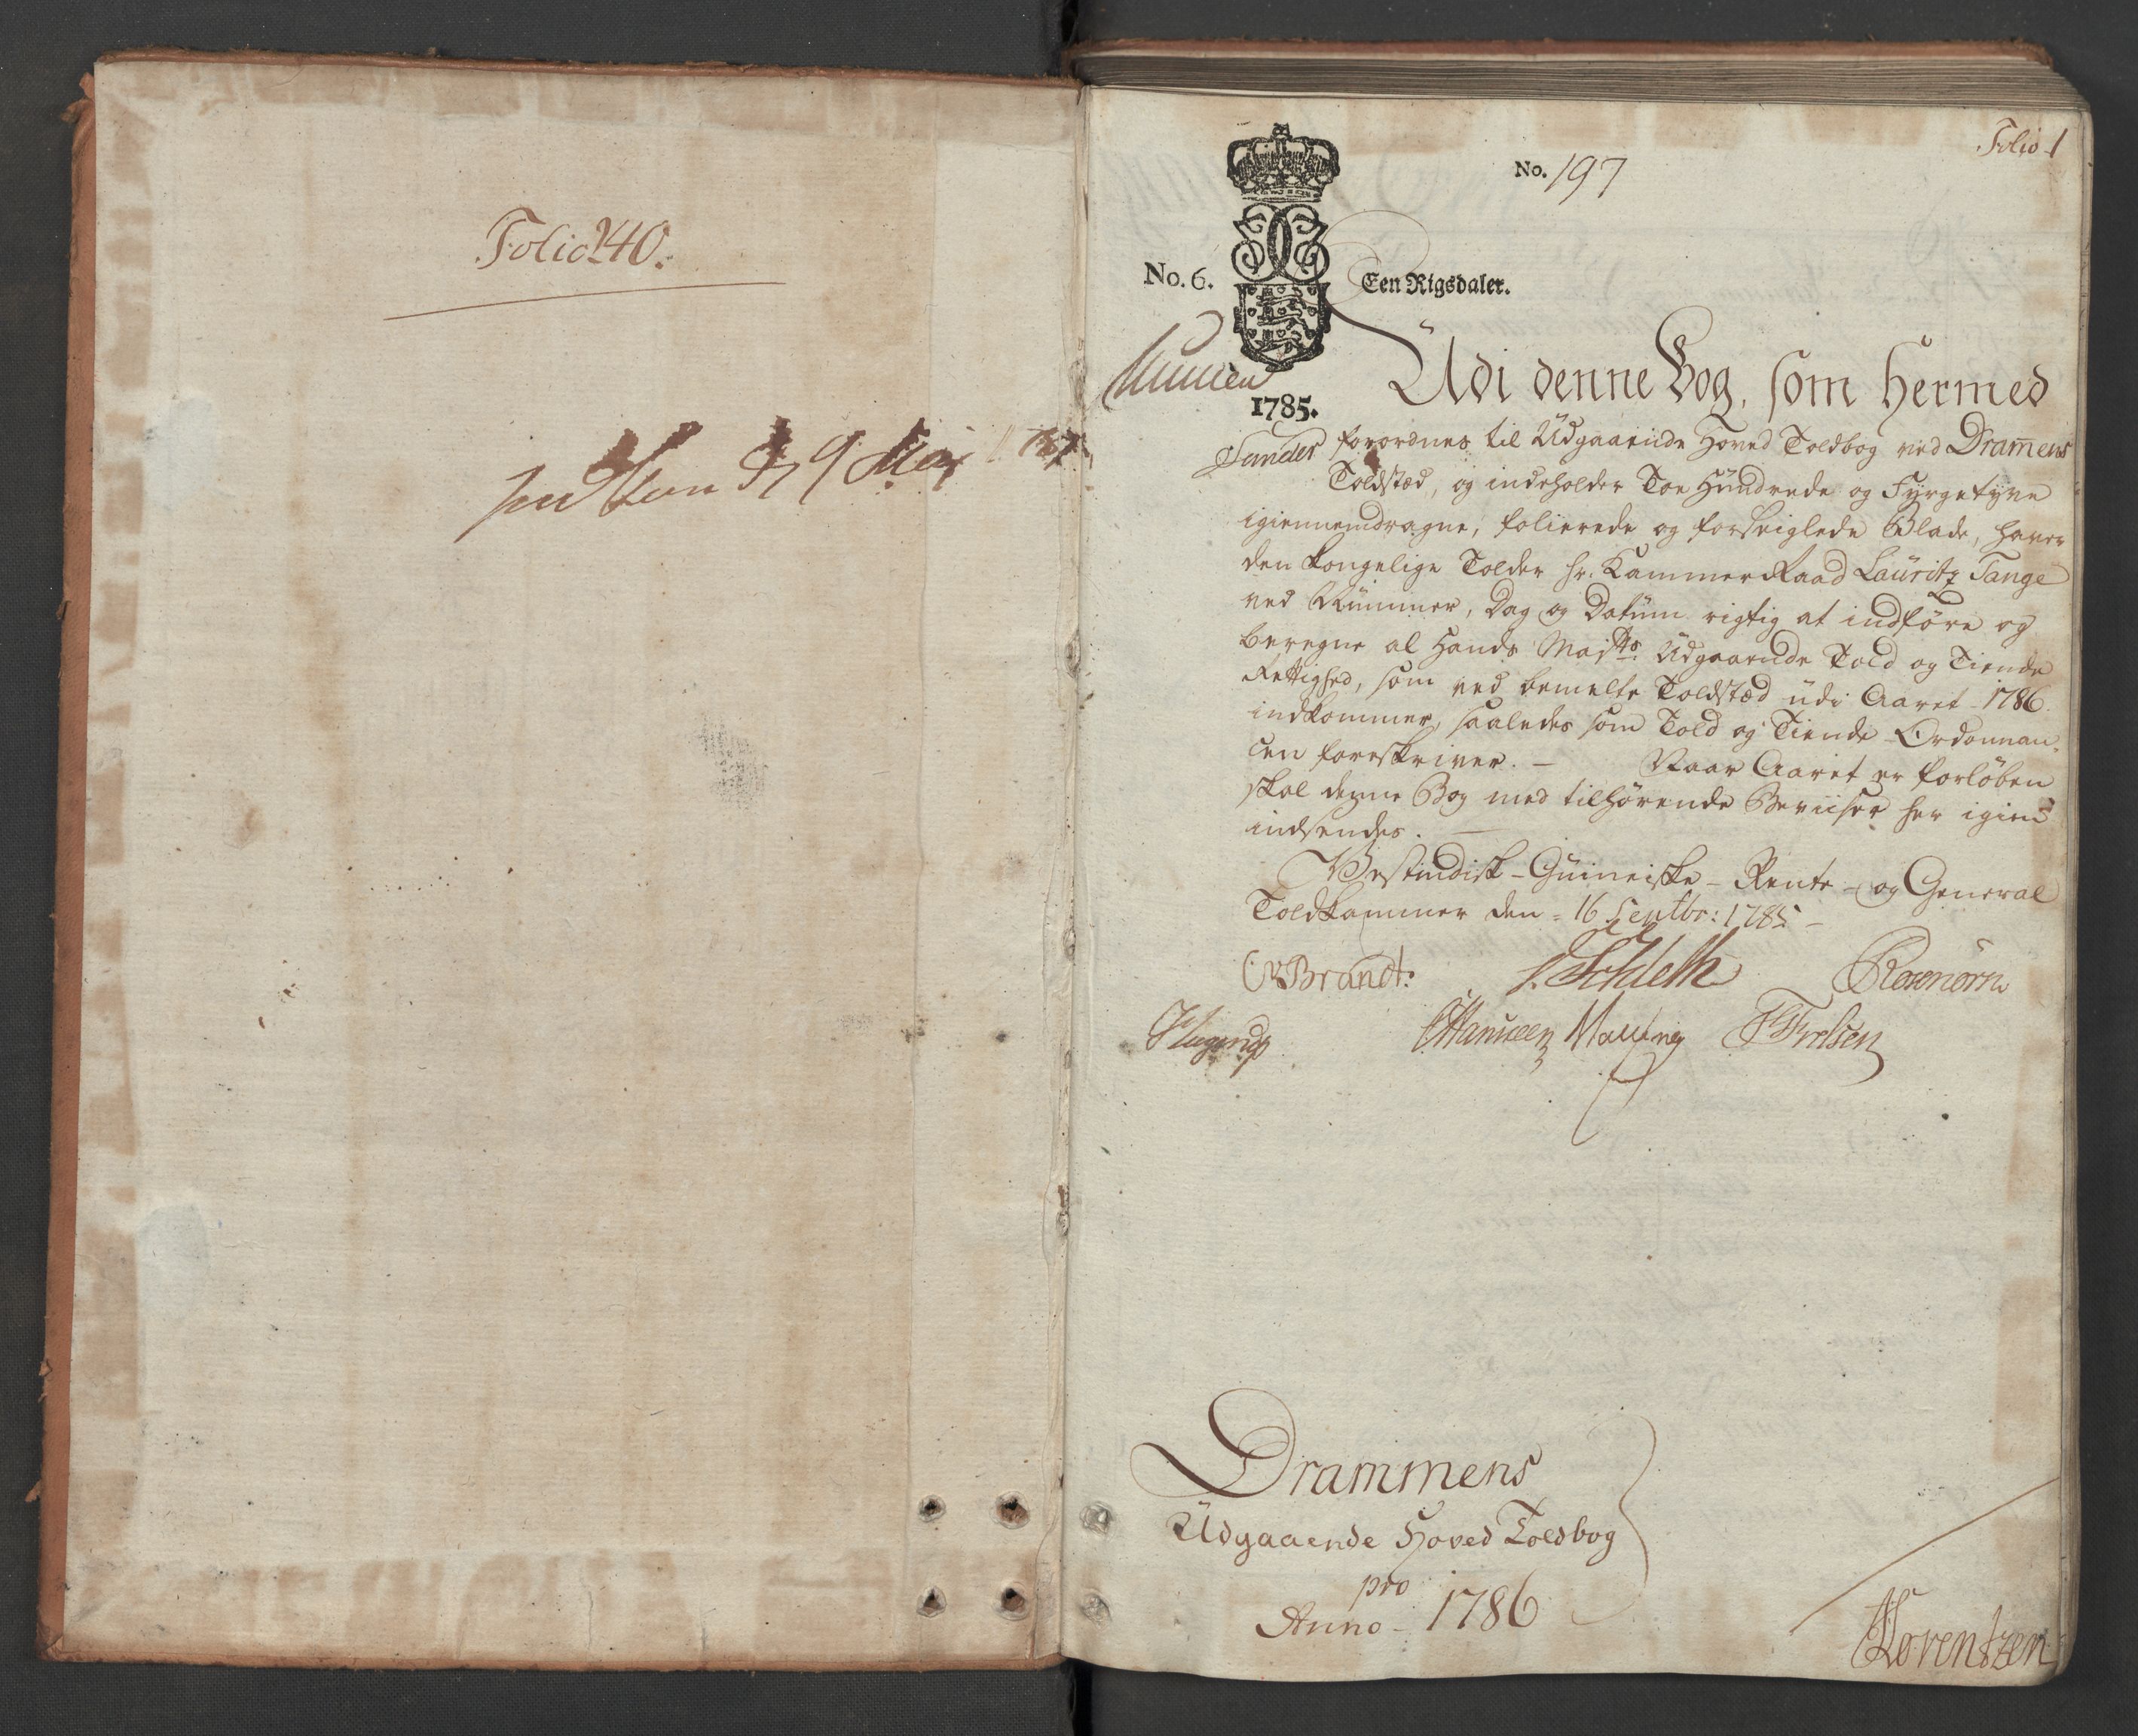 Folio 240.
d 9 Maj 1787
Folio 1
No. 197
No. 6.
Een Rigsdaler.
1785.
Udi denne Bog, som hermed
forordnes til Udgaaende Hoved Toldbog ved Drammens
Toldstæd, og indeholder Toe Hundrede og Fyrgetyve
igiennemdragne, folierede og forseiglede Blade, haver
den kongelige Tolder hr. Kammer Raad Lauritz Tange
ved Nummer, Dag og Datum rigtig at indføre og
beregne al Hands Maj:ts Udgaaende Told og Tiende
Rettighed, som ved bemelte Toldstæd udi Aaret 1786.
indkommer, saaledes som Told og Tiende Ordonnan-
cen foreskriver. — Naar Aaret er forløben
skal denne Bog med tilhørende Beviiser her igien
indsendes. —
Vestindisk-Guineiske-Rente-og General
Toldkammer den 16 Septbr: 1785 –
Brandt:
Rosenørn
Hansen Malling
Drammens
Udgaaende Hoved Toldbog
pro
Anno - 1786
Lorentzen